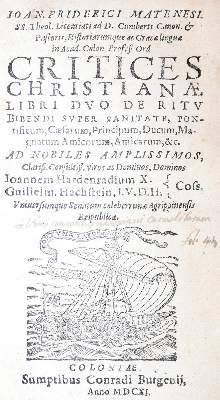 IOAN. FRIDERICI MATENESI,
SS. Theol. Licentiati ad D. Cuniberti Canon. &
Pastoris, Historiarumque ac Græcæ linguæ
in Acad. Colon. Prof. Ord.
CRITICES
CHRISTIANÆ,
LIBRI DVO DE RITV
BIBENDI SVPER SANITATE, PON-
tificum, Cæsarum, Principum, Ducum, Ma-
gnatum Amicorum, Amicarum, &c.
AD NOBILES AMPLISSIMOS,
Clariss. Consultiss. viros ac Dominos, Dominos
Ioannem Hardenradium X.
Guilielm. Hachstein, I.V.D.II.
Coss.
Vniuersumque Senatum celeberrimæ Agrippinensis
Reipublicæ.
COLONIAE,
Sumptibus Conradi Butgenij,
Anno MDCXI.